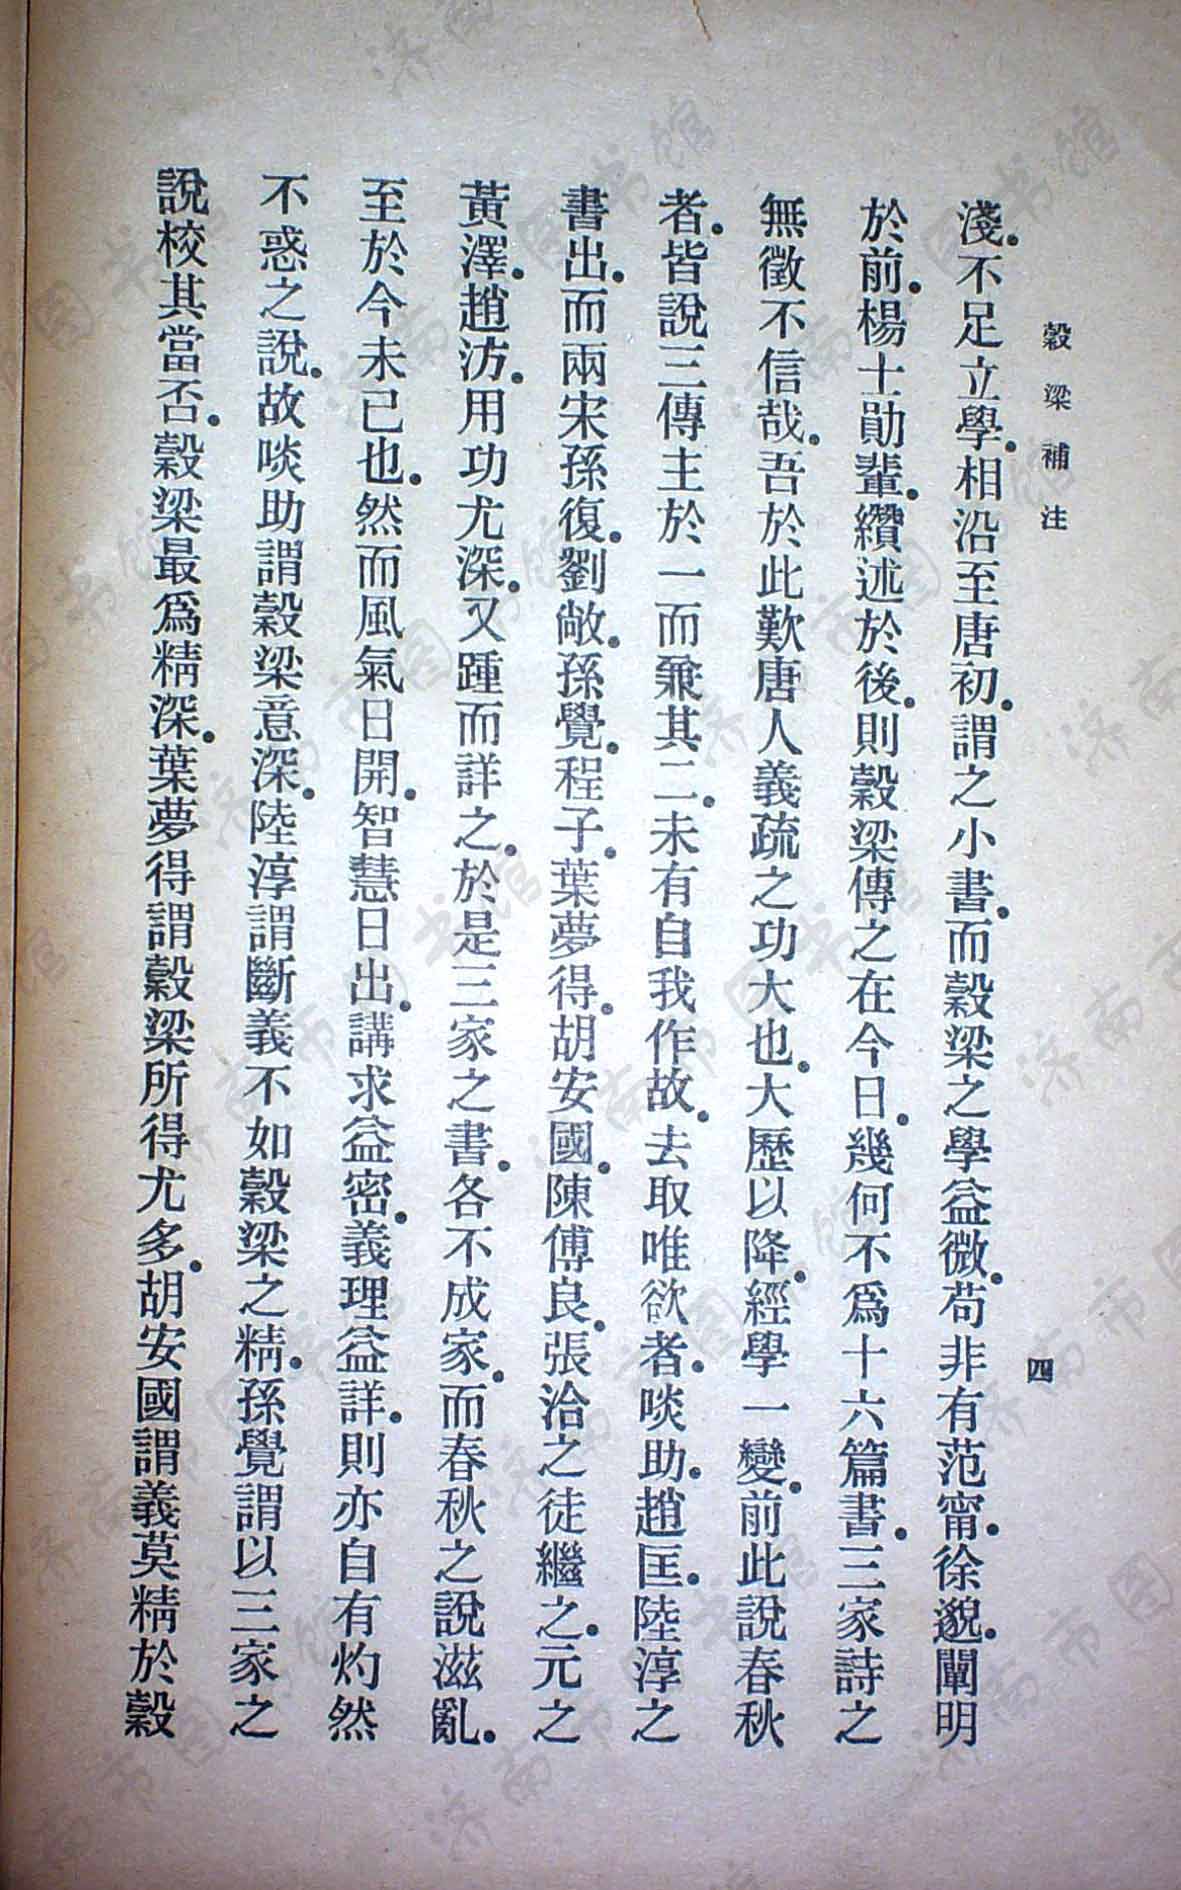 穀梁補注
四
淺。不足立學。相沿至唐初。謂之小書。而穀梁之學益微。苟非有范甯。徐邈。闡明
於前。楊士勛輩。纘述於後。則穀梁傳之在今日。幾何不爲十六篇書。三家詩之
無徵不信哉。吾於此歎唐人義疏之功大也。大歷以降。經學一變。前此說春秋
者。皆說三傳主於一而兼其二。未有自我作故。去取唯欲者。啖助。趙匡。陸淳之
書出。而兩宋孫復。劉敞。孫覺。程子。葉夢得。胡安國。陳傅良。張洽之徒繼之。元之
黃澤。趙汸。用功尤深。又踵而詳之。於是三家之書。各不成家。而春秋之說滋亂。
至於今未已也。然而風氣日開。智慧日出。講求益密。義理益詳。則亦自有灼然
不惑之說。故啖助謂穀梁意深。陸淳謂斷義不如穀梁之精。孫覺謂以三家之
說校其當否。穀梁最爲精深。葉夢得謂穀梁所得尤多。胡安國謂義莫精於穀
濟南市图书馆